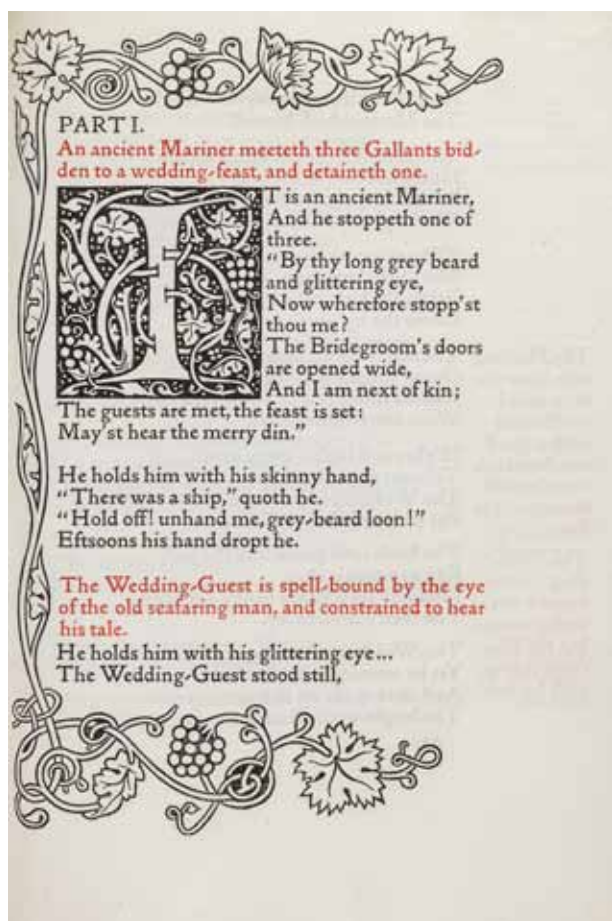 PART I.
An ancient Mariner meeteth three Gallants bid-
den to a wedding-feast, and detaineth one.
IT is an ancient Mariner,
And he stoppeth one of
three.
"By thy long grey beard
and glittering eye,
Now wherefore stopp'st
thou me?
The Bridegroom's doors
are opened wide,
And I am next of kin;
The guests are met, the feast is set:
May'st hear the merry din."
He holds him with his skinny hand,
"There was a ship," quoth he.
"Hold off! unhand me, grey-beard loon!"
Eftsoons his hand dropt he.
The Wedding-Guest is spell-bound by the eye
of the old seafaring man, and constrained to hear
his tale.
He holds him with his glittering eye...
The Wedding-Guest stood still,